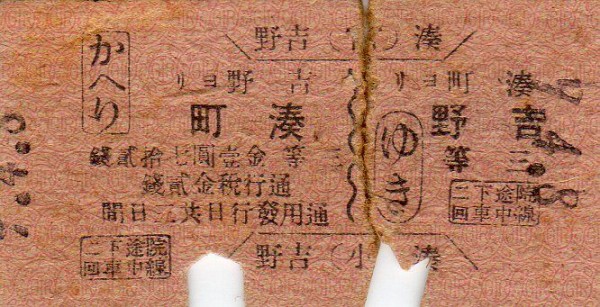 湊 吉野
湊町ヨリ
吉野
三等
ゆき
院線途中下車二回
吉野ヨリ
湊町
三等金壹圓七拾貳錢
通行税金貳錢
通用發行日共二日間
かへり
院線途中下車二回
湊(小)吉野
7.4.8
7.4.8